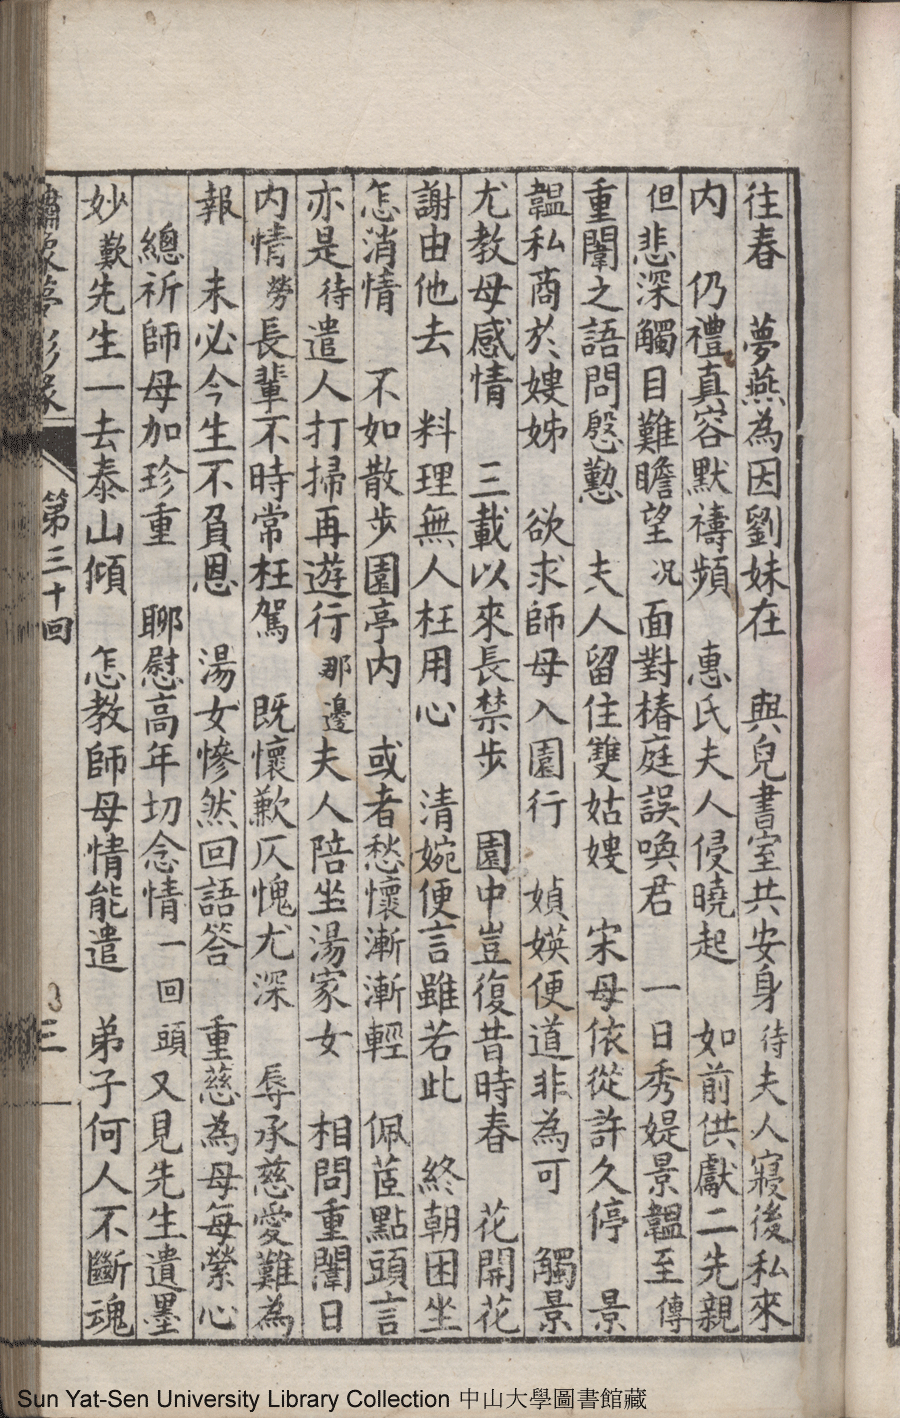 往春　夢燕為因劉妹在　與兒書室共安身待夫人寢後私來
內　仍禮真容默禱頻　惠氏夫人侵曉起　如前供獻二先親
但悲深觸目難瞻望況面對椿庭誤喚君　一日秀媞景韞至傳
重闈之語問慇懃　夫人留住雙姑嫂　宋母依從許久停　景
韞私商於嫂姊　欲求師母入園行　媜媖便道非為可　觸景
尤教母感情　三載以來長禁步　園中豈復昔時春　花開花
謝由他去　料理無人枉用心　清婉便言雖若此　終朝困坐
怎消情　不如散步園亭內　或者愁懷漸漸輕　佩茝點頭言
亦是待遣人打掃再遊行那邊夫人陪坐湯家女　相問重闈日
內情勞長輩不時常枉駕　既懷歉仄愧尤深　辱承慈愛難為
報　未必今生不負恩　湯女慘然回語答　重慈為母每縈心
總祈師母加珍重　聊慰高年切念情一回頭又見先生遺墨
妙歎先生一去泰山傾　怎教師母情能遣　弟子何人不斷魂
夢影緣
第三十回
三
Sun Yat-Sen University Library Collection 中山大學圖書館藏